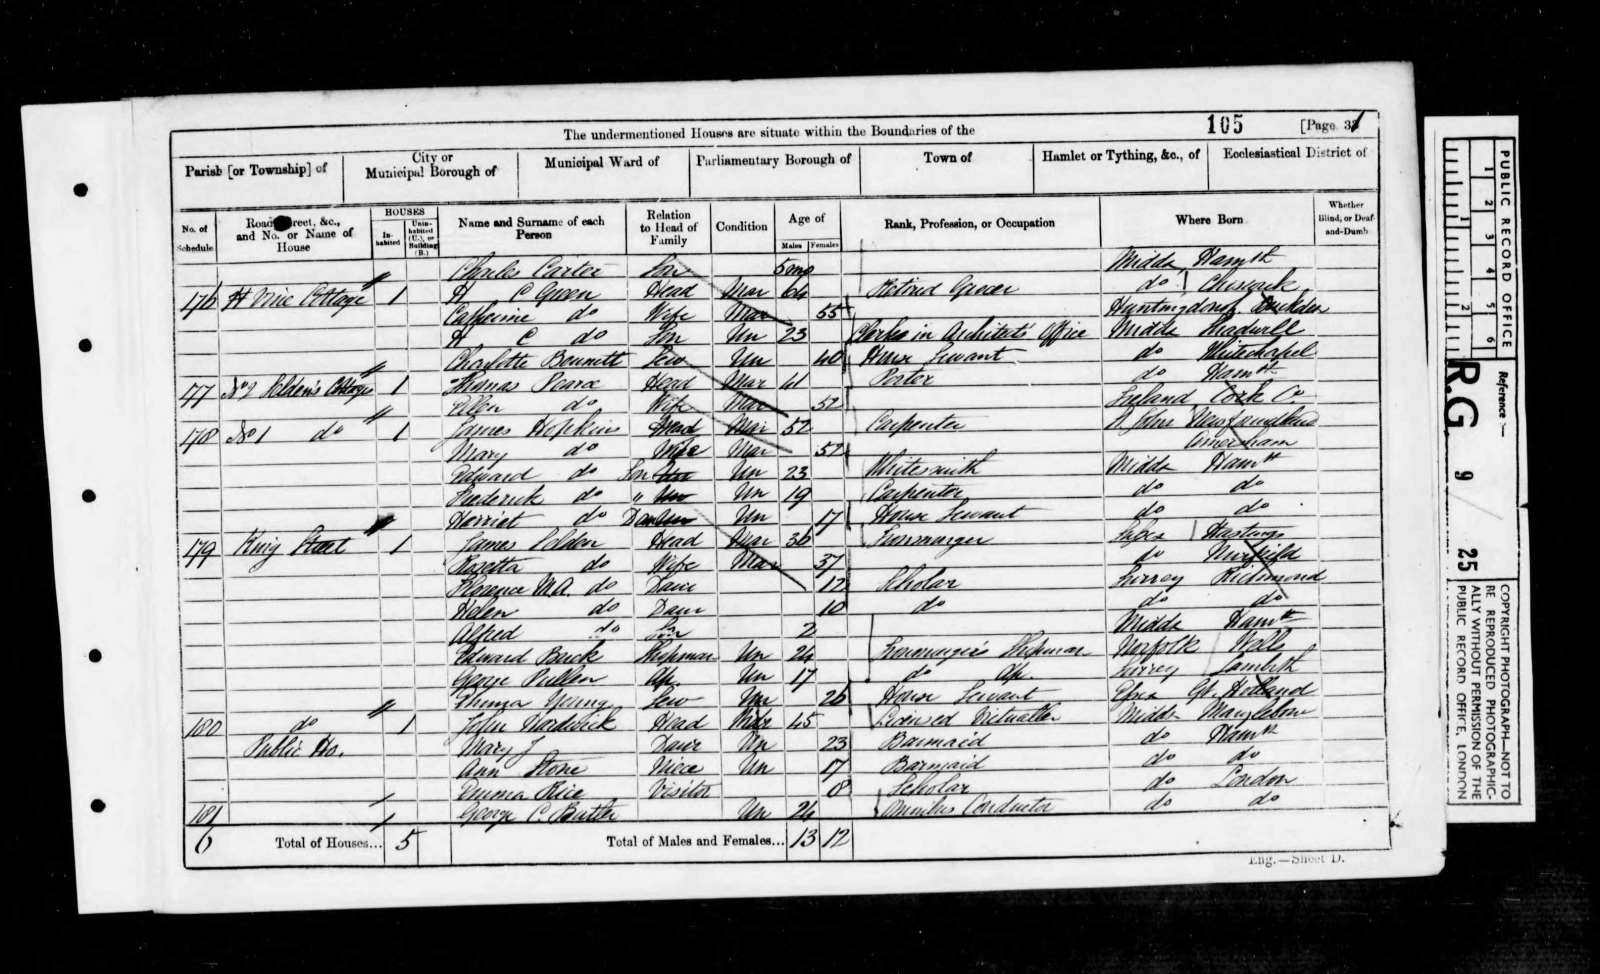 The undermentioned Houses are situate within the Boundaries of the
105
[Page 31
Parish [or Township] of
City or Municipal Borough of
Municipal Ward of
Parliamentary Borough of
Town of
Hamlet or Tything, &c., of
Ecclesiastical District of
No. of Schedule
Road, Street, &c., and No. or Name of House
HOUSES
Inhabited
Uninhabited (U.), or Building (B.)
Name and Surname of each Person
Relation to Head of Family
Condition
Age of
Males
Females
Rank, Profession, or Occupation
Where Born
Whether Blind, or Deaf-and-Dumb
Charles Carter Son 5 mo Middx Hamth
176 Cottage 1 H C Green Head Mar 64 Retired Grocer do Chiswick
Catherine do Wife Mar 55
H C do Son Un 23 Clerk in Architects Office Middx Shadwell
Charlotte Bennett Serv Un 40 House Servant do Whitechapel
177 No 2 Selden's Cottage 1 Thomas Pearce Head Mar 61 Porter do Hamth
Ellen do Wife Mar 52 Ireland Cork Co
178 No 1 do 1 James Hopkins Head Mar 52 Carpenter St Johns Newfoundland
Mary do Wife Mar 52 Amersham
Edward do Son Un 23 Whitesmith Middx Hamth
Frederick do " Un 19 Carpenter do do
Harriet do Daur Un 17 House Servant do do
179 King Street 1 James Selden Head Mar 36 Ironmonger Sussex Hastings
Rosetta do Wife Mar 37 do
Florence M.A. do Daur 12 Scholar Surrey Richmond
Helen do Daur 10 do do do
Alfred do Son 2 Middx Hamth
Edward Buck Shopman Un 24 Ironmonger's Shopman Norfolk Wells
George Pullen Ap. Un 17 do Ap. Surrey Lambeth
Young Serv Un 20 House Servant Essex Gt Holland
180 do 1 John Hardwick Head Mar 45 Licensed Victualler Middx Marylebone
Public Ho. Mary J Daur Un 23 Barmaid do Hamth
Ann Stone Niece Un 17 Barmaid do do
Emma Rice Visitor 8 Scholar do London
181 George C Butler Un 24 Omnibus Conductor do do
6 Total of Houses... 5 Total of Males and Females... 13 12
Eng.—Sheet D.
PUBLIC RECORD OFFICE
1 2 3 4 5 6
1 2
Reference:—
R.G. 9 / 25
COPYRIGHT PHOTOGRAPH—NOT TO BE REPRODUCED PHOTOGRAPHICALLY WITHOUT PERMISSION OF THE PUBLIC RECORD OFFICE, LONDON